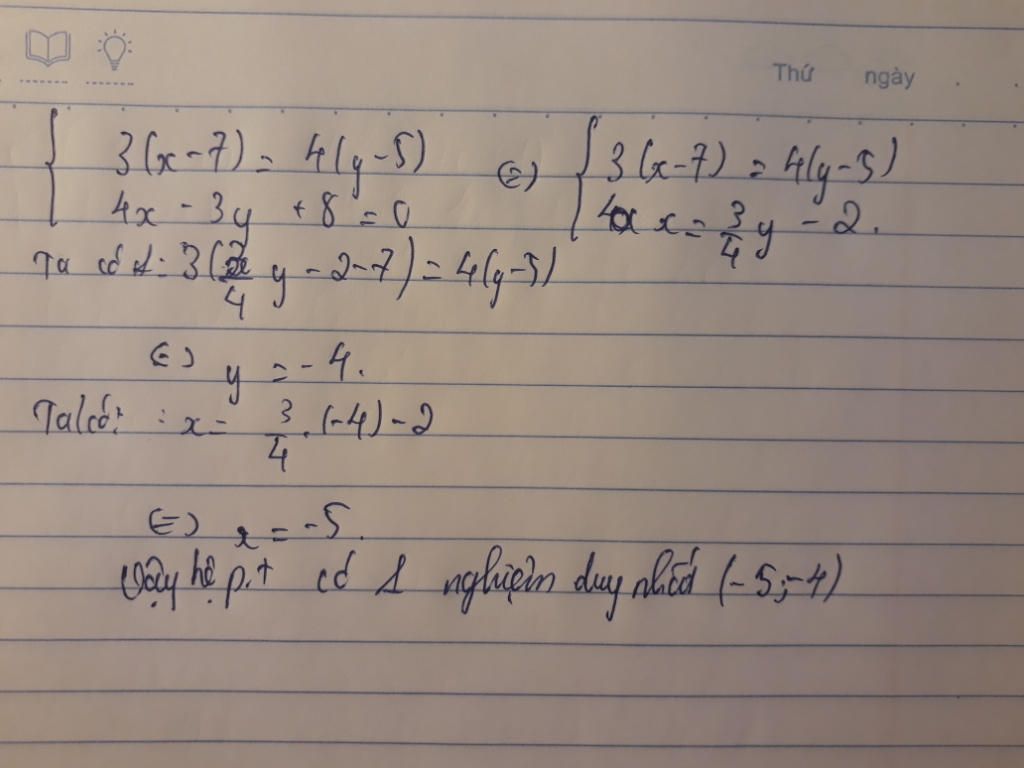 Thứ ngày
3(x-7) = 4(y-5) ⇔ 3(x-7) = 4(y-5)
4x - 3y + 8 = 0 x = 3/4 y - 2.
Ta có 1: 3(3/4 y - 2 - 7) = 4(y-5)
⇔ y = -4.
Ta có: x = 3/4 . (-4) - 2
⇔ x = -5.
Vậy hệ p.t có 1 nghiệm duy nhất (-5;-4)